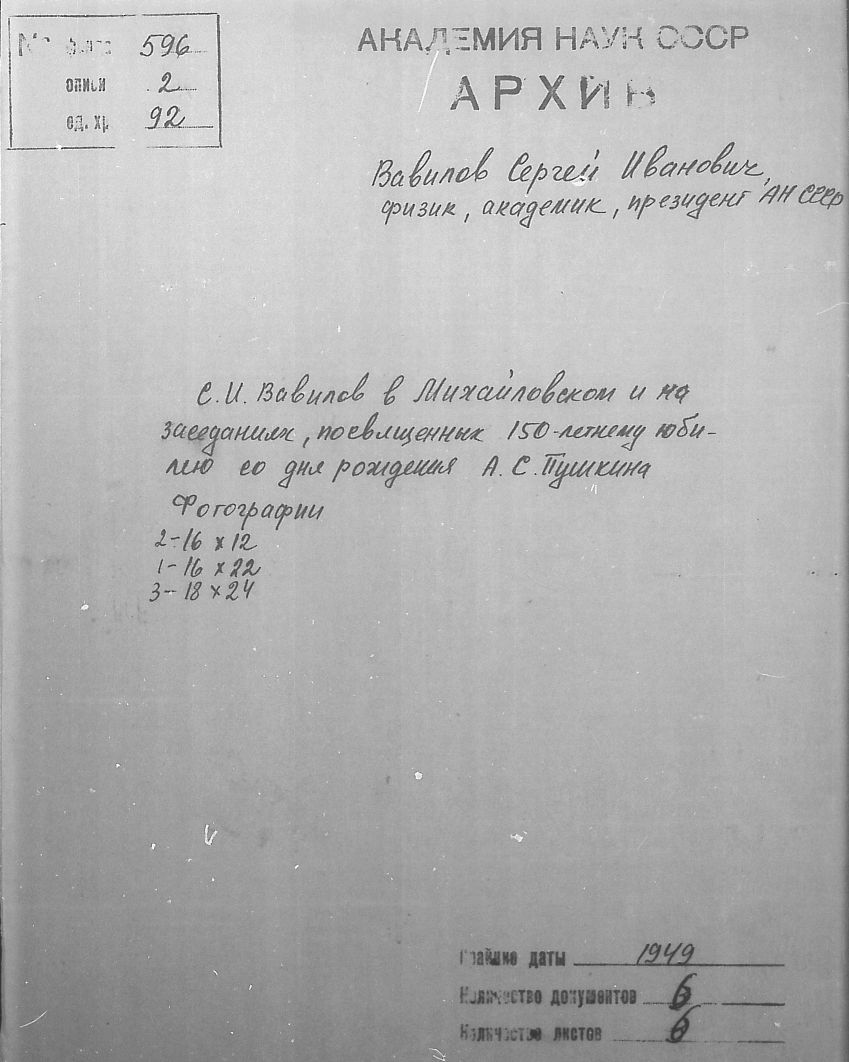 № фонда 596
описи 2
ед. хр. 92
АКАДЕМИЯ НАУК СССР
АРХИВ
Вавилов Сергей Иванович,
физик, академик, президент АН СССР
С. И. Вавилов в Михайловском и на
заседаниях, посвященных 150-летнему юби-
лею со дня рождения А. С. Пушкина
Фотографии
2-16 x 12
1-16 x 22
3-18 x 24
Крайние даты 1949
Количество документов 6
Количество листов 6